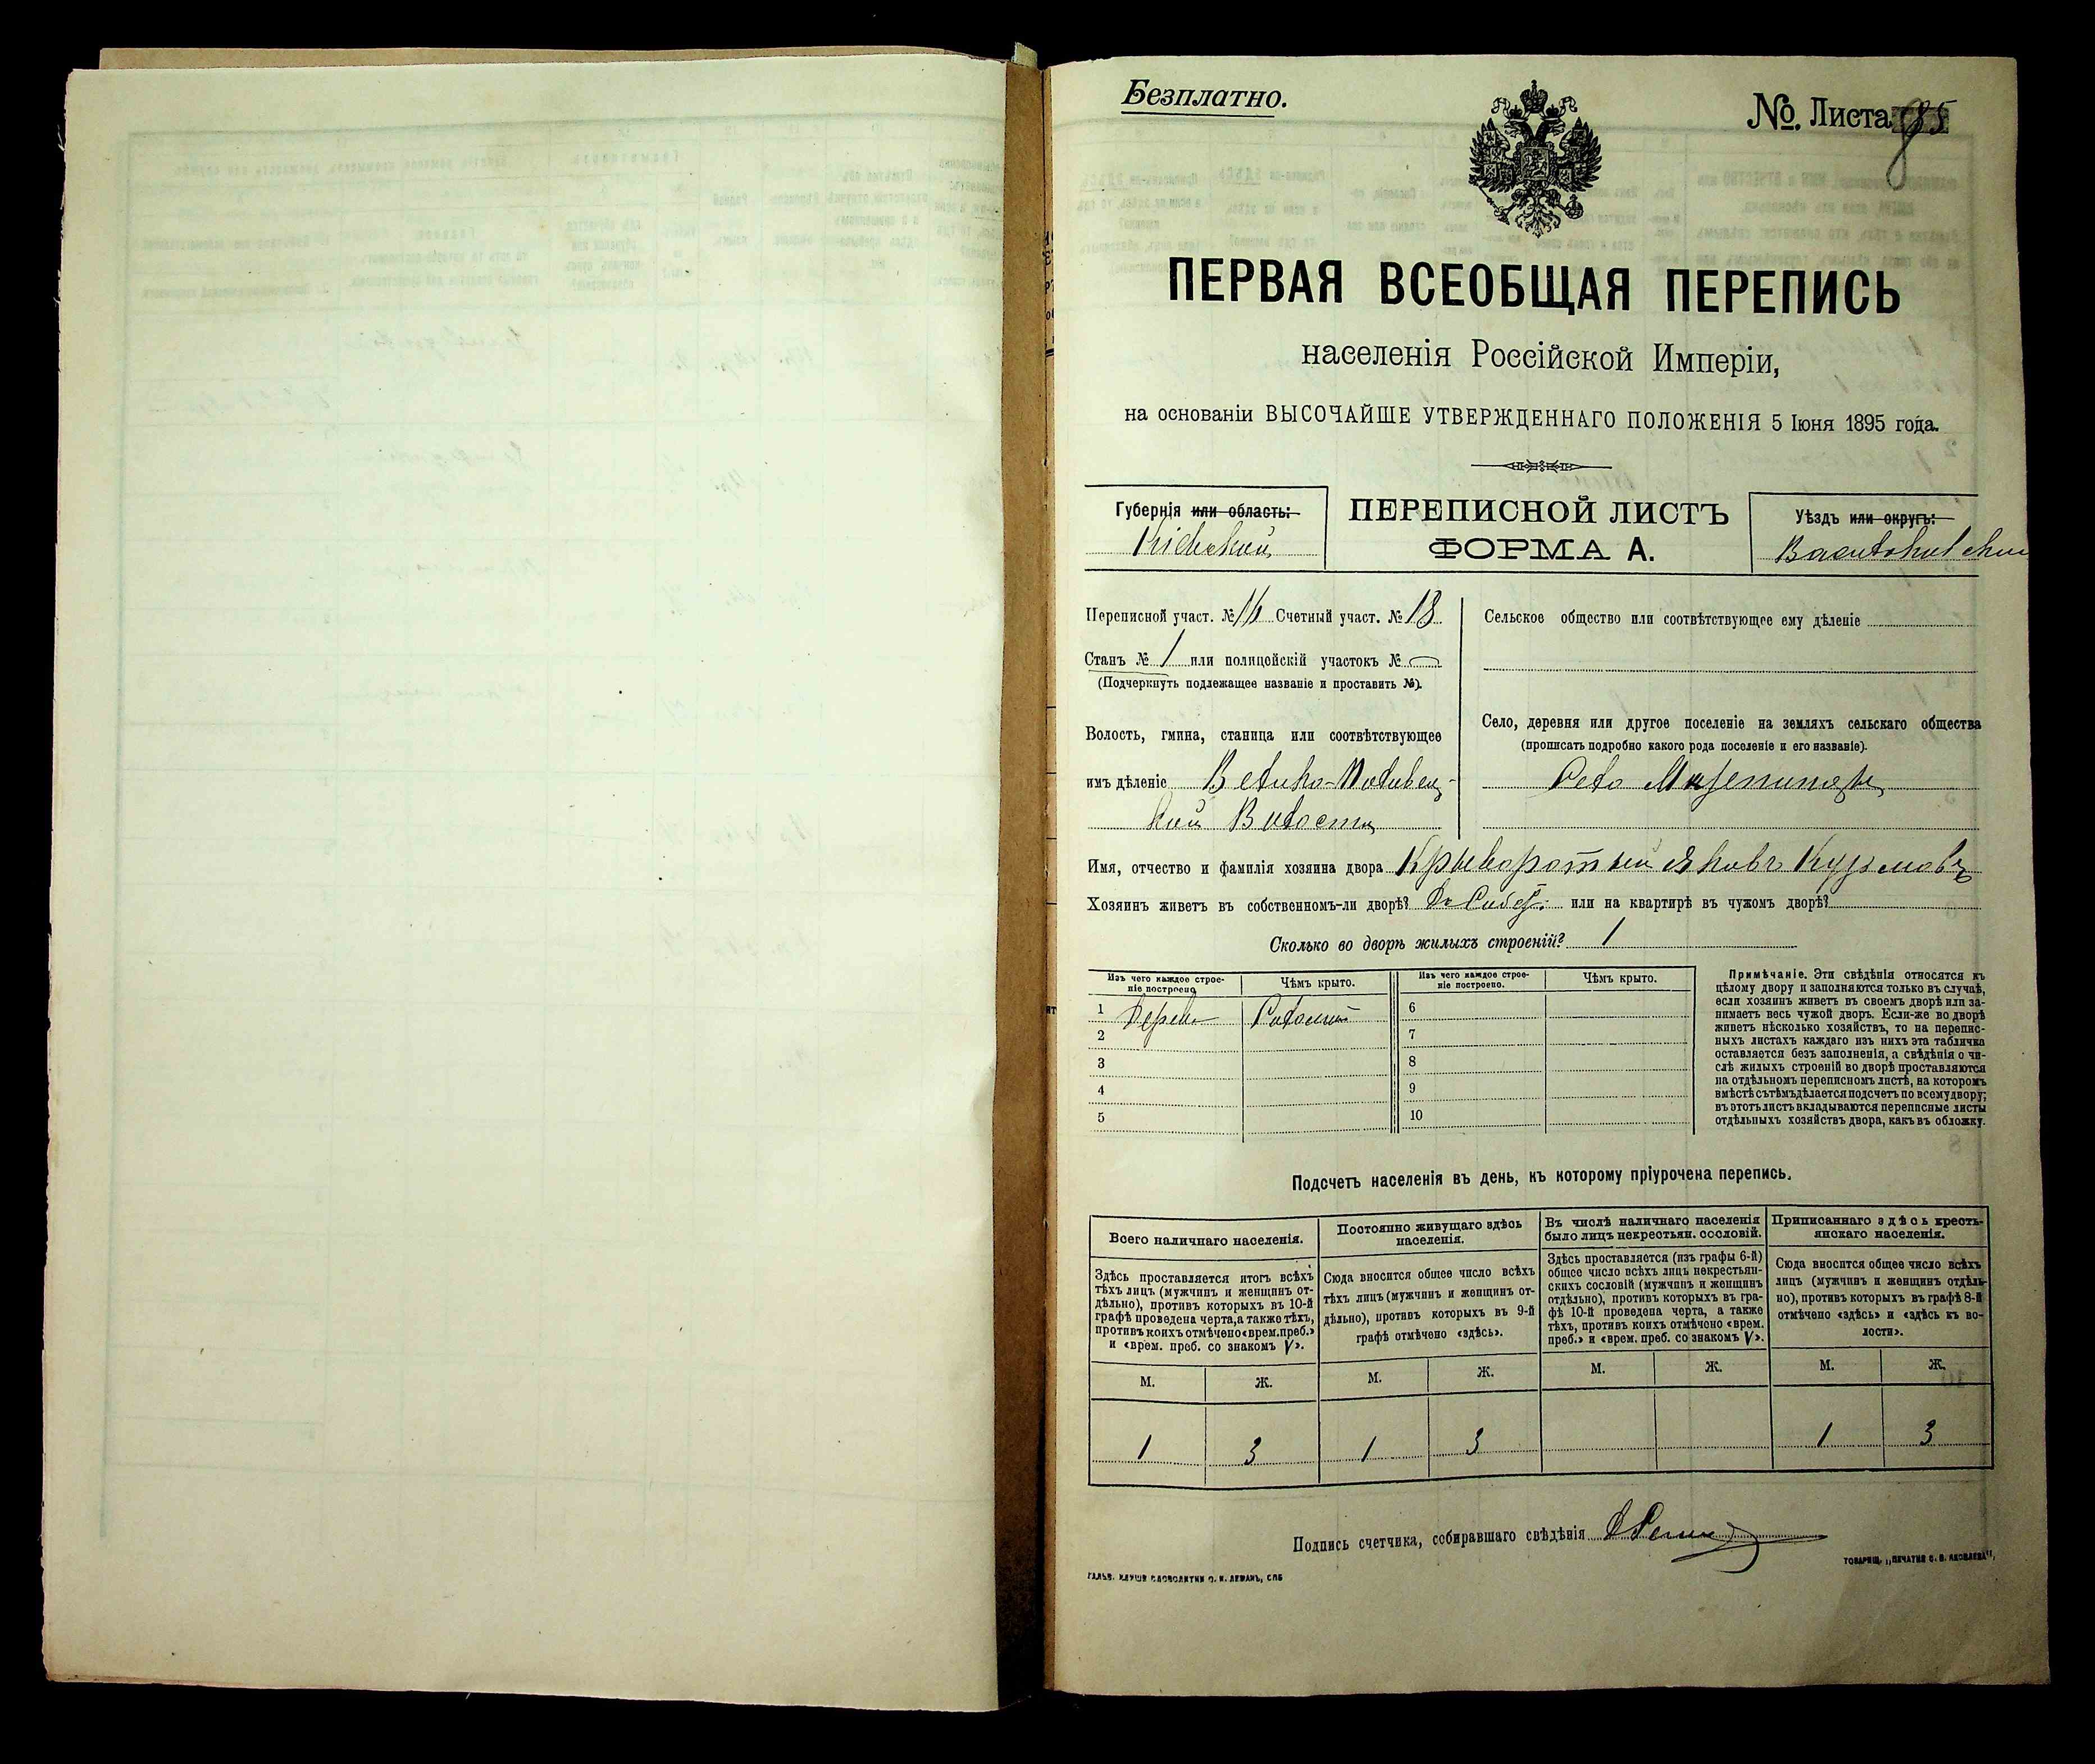 Безплатно.
№. Листа 85
ПЕРВАЯ ВСЕОБЩАЯ ПЕРЕПИСЬ
населенія Россійской Имперіи,
на основаніи ВЫСОЧАЙШЕ УТВЕРЖДЕННАГО ПОЛОЖЕНІЯ 5 Іюня 1895 года.
Губернія или область:
Кіевской
ПЕРЕПИСНОЙ ЛИСТЪ
ФОРМА А.
Уѣздъ или округъ:
Переписной участ. № 16 Счетный участ. № 18
Станъ № 1 или полицейскій участокъ №
(Подчеркнуть подлежащее названіе и проставить №).
Волость, гмина, станица или соотвѣтствующее
имъ дѣленіе Велико-Половец-
кой Волости
Сельское общество или соотвѣтствующее ему дѣленіе
Село, деревня или другое поселеніе на земляхъ сельскаго общества
(прописать подробно какого рода поселеніе и его названіе).
Село Мазепинцы
Имя, отчество и фамилія хозяина двора Крыворотый Яковъ Кузьмовъ
Хозяинъ живетъ въ собственномъ-ли дворѣ? или на квартирѣ въ чужомъ дворѣ?
Сколько во дворѣ жилыхъ строеній? 1
Изъ чего каждое строе-
ніе построено
Чѣмъ крыто.
Изъ чего каждое строе-
ніе построено.
Чѣмъ крыто.
1 Дерева Соломой
2
3
4
5
6
7
8
9
10
Примѣчаніе. Эти свѣдѣнія относятся къ
цѣлому двору и заполняются только въ случаѣ,
если хозяинъ живетъ въ своемъ дворѣ или за-
нимаетъ весь чужой дворъ. Если-же во дворѣ
живетъ нѣсколько хозяйствъ, то на перепис-
ныхъ листахъ каждаго изъ нихъ эта табличка
оставляется безъ заполненія, а свѣдѣнія о чи-
слѣ жилыхъ строеній во дворѣ проставляются
на отдѣльномъ переписномъ листѣ, на которомъ
вмѣстѣ съ тѣмъ дѣлается подсчетъ по всему двору;
въ этотъ листъ вкладываются переписные листы
отдѣльныхъ хозяйствъ двора, какъ въ обложку.
Подсчетъ населенія въ день, къ которому пріурочена перепись.
Всего наличнаго населенія.
Здѣсь проставляется итогъ всѣхъ
тѣхъ лицъ (мужчинъ и женщинъ от-
дѣльно), противъ которыхъ въ 10-й
графѣ проведена черта, а также тѣхъ,
противъ коихъ отмѣчено «врем. преб.»
и «врем. преб. со знакомъ V».
Постоянно живущаго здѣсь
населенія.
Сюда вносится общее число всѣхъ
тѣхъ лицъ (мужчинъ и женщинъ от-
дѣльно), противъ которыхъ въ 9-й
графѣ отмѣчено «здѣсь».
Въ числѣ наличнаго населенія
было лицъ некрестьян. сословій.
Здѣсь проставляется (изъ графы 6-й)
общее число всѣхъ лицъ некрестьян-
скихъ сословій (мужчинъ и женщинъ
отдѣльно), противъ которыхъ въ гра-
фѣ 10-й проведена черта, а также
тѣхъ, противъ коихъ отмѣчено «врем.
преб.» и «врем. преб. со знакомъ V».
Приписаннаго здѣсь кресть-
янскаго населенія.
Сюда вносится общее число всѣхъ
лицъ (мужчинъ и женщинъ отдѣль-
но), противъ которыхъ въ графѣ 8-й
отмѣчено «здѣсь» и «здѣсь къ во-
лости».
М. Ж. М. Ж. М. Ж. М. Ж.
1 3 1 3 1 3
Подпись счетчика, собиравшаго свѣдѣнія
ТОВАРИЩ. „ПЕЧАТНЯ С. П. ЯКОВЛЕВА“.